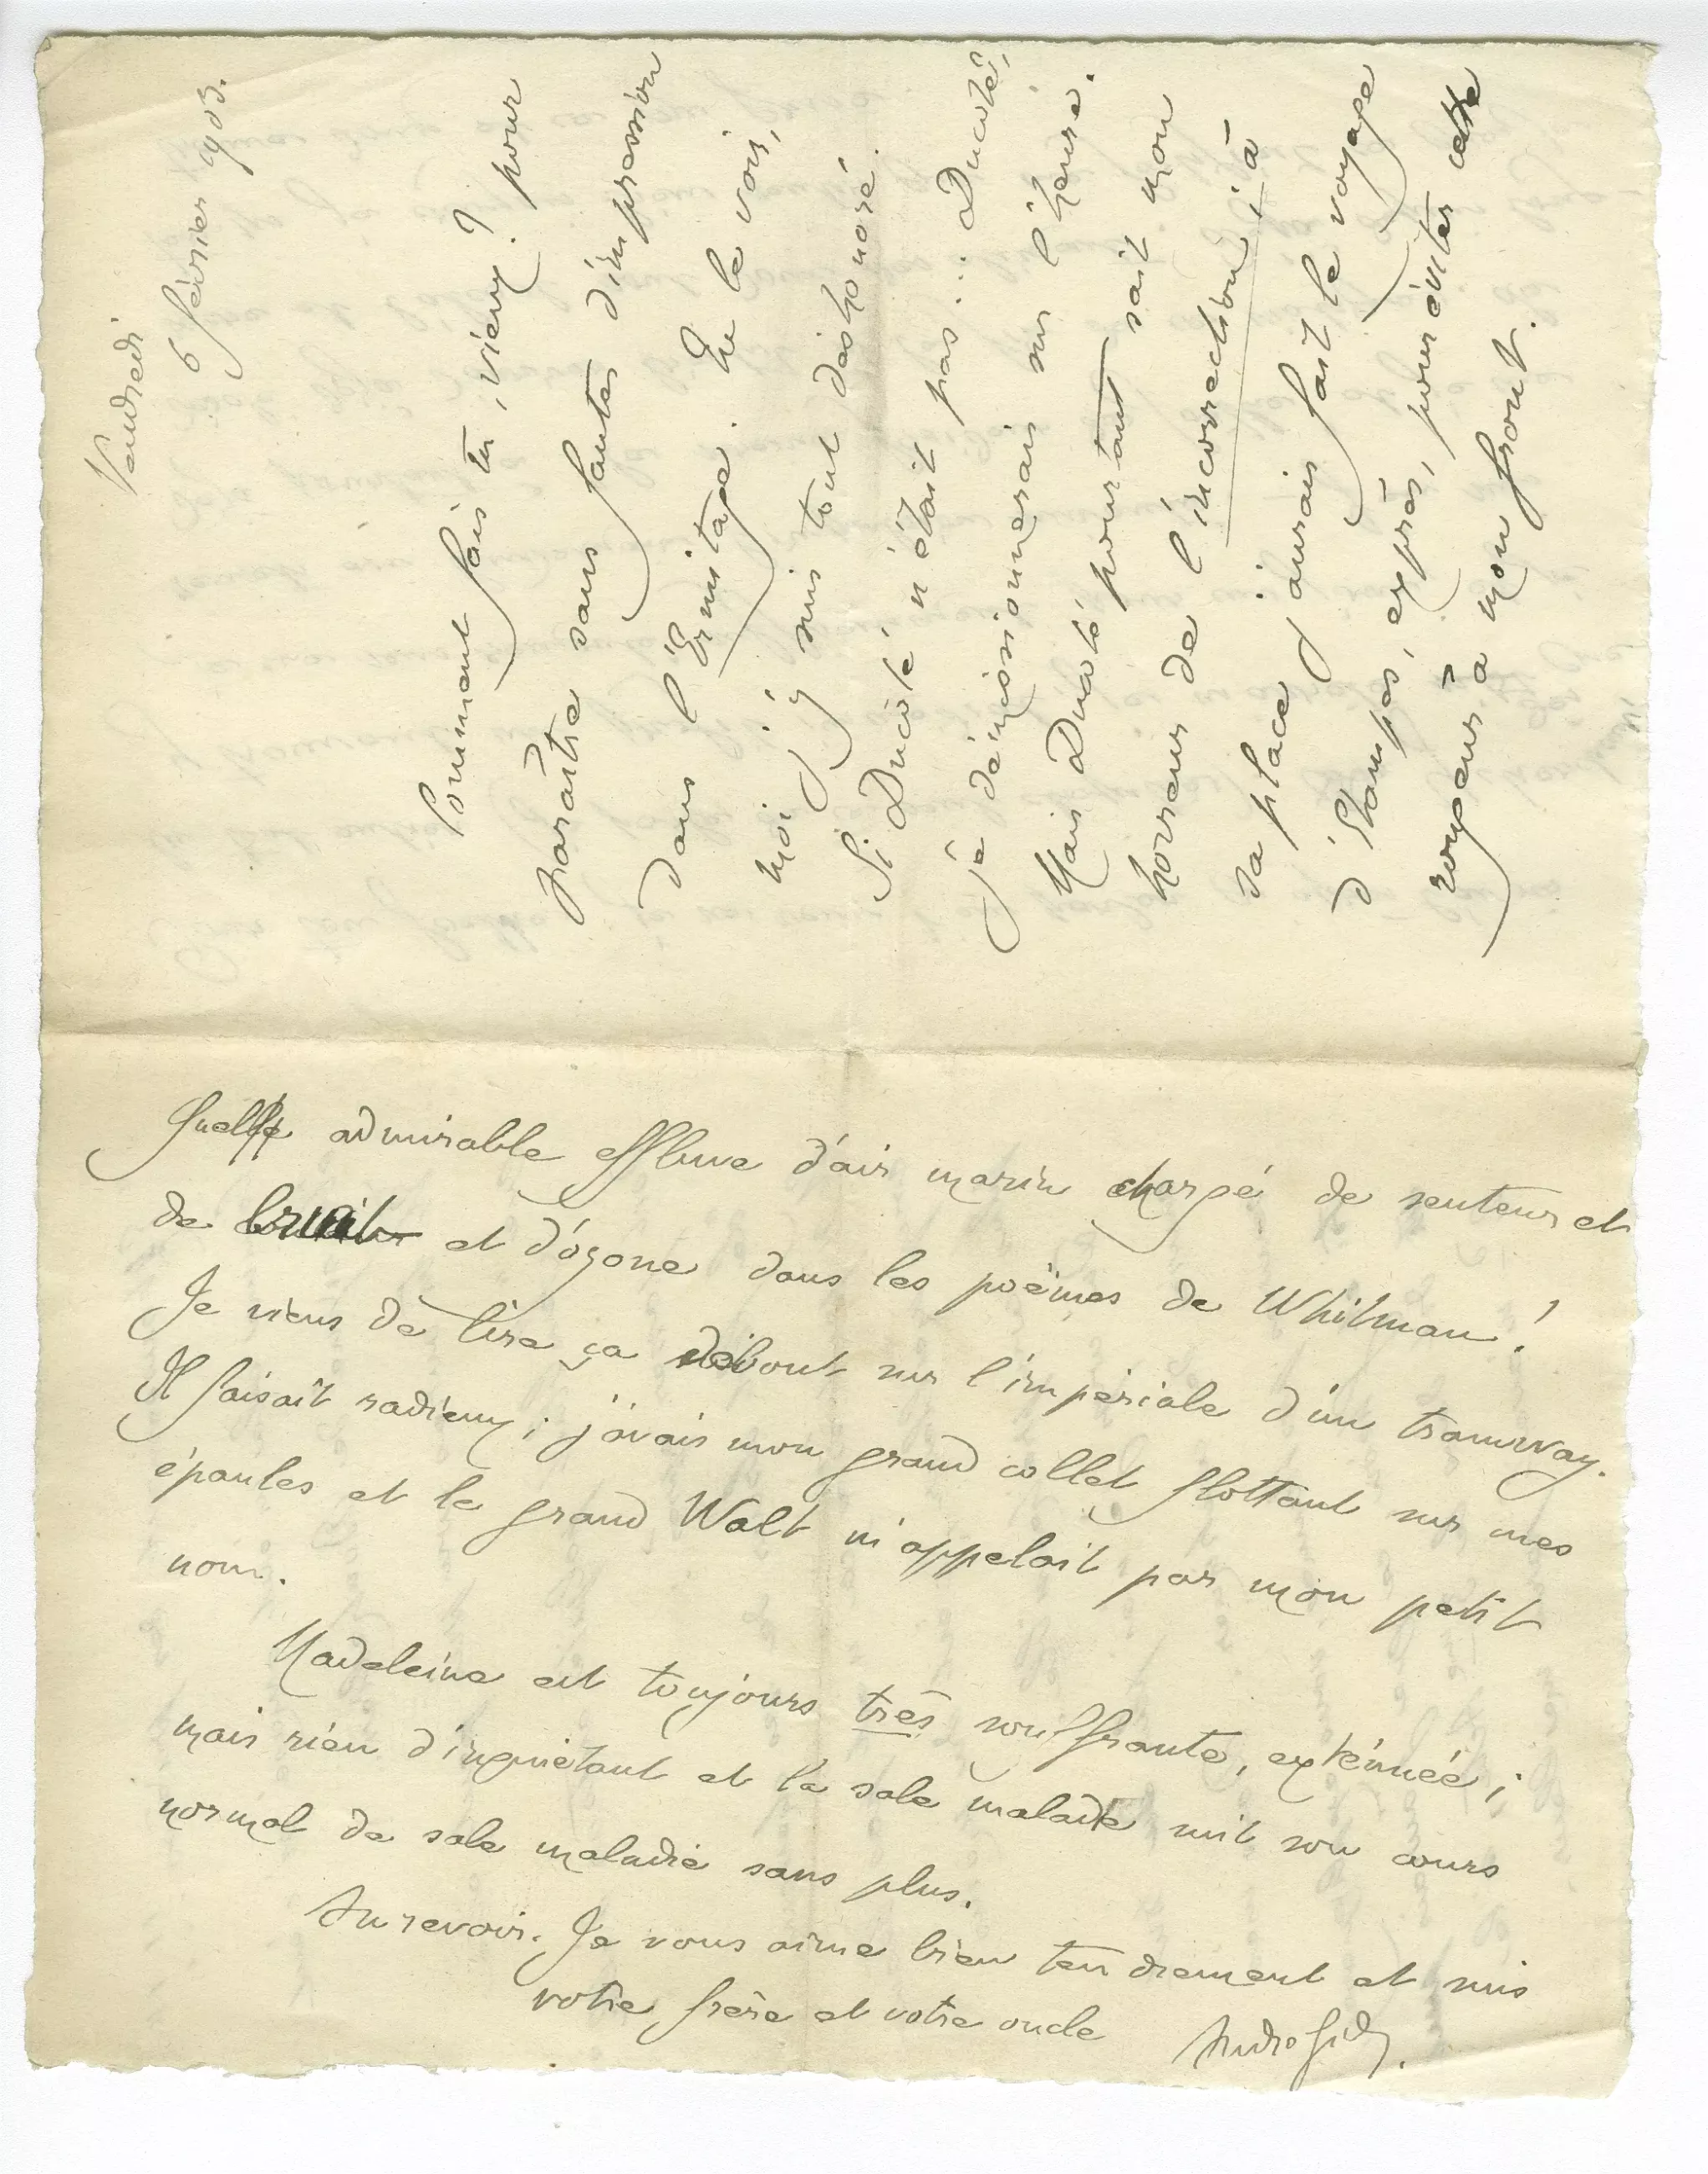 Vendredi
6 février 1903.
Comment fais tu, vieux ? pour
paraître sans fautes d'impression
dans l'Ermitage. Tu le vois,
moi j'y suis tout déshonoré.
Si Ducoté n'était pas... Ducoté,
je démissionnerais sur l'heure.
Mais Ducoté pourtant sait mon
horreur de l'incorrection ; à
sa place j'aurais fait le voyage
d'Étampes, exprès, pour éviter cette
rougeur à mon front.
Quelle admirable effluve d'air marin chargé de senteurs et
de bruit et d'ozone dans les poëmes de Whitman !
Je viens de lire ça debout sur l'impériale d'un tramway.
Il faisait radieux ; j'avais mon grand collet flottant sur mes
épaules et le grand Walt m'appelait par mon petit
nom.
Madeleine est toujours très souffrante, exténuée ;
mais rien d'inquiétant et la sale maladie suit son cours
normal de sale maladie sans plus.
Au revoir. Je vous aime bien tendrement et suis
votre frère et votre oncle
André Gide.